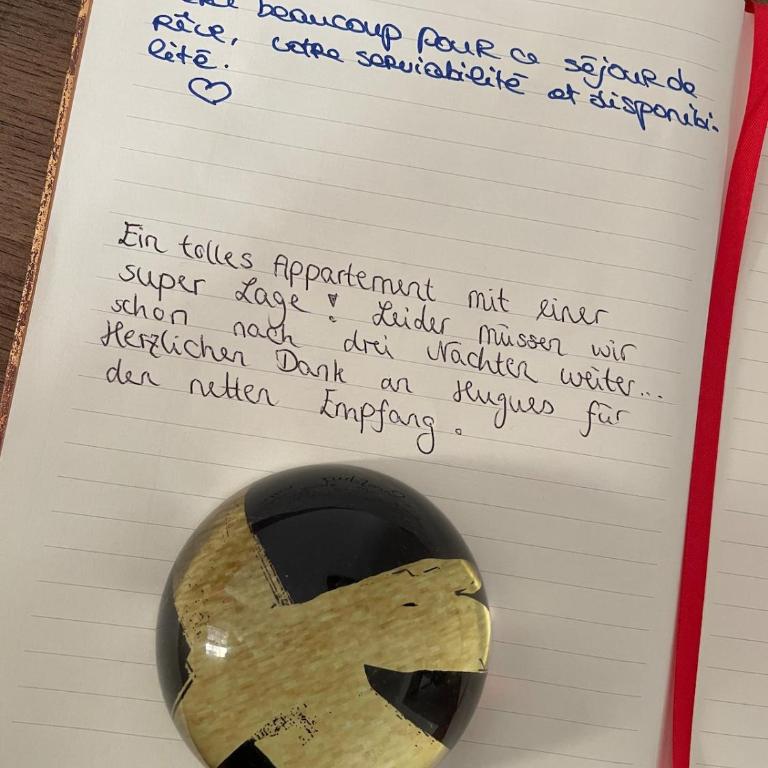 beaucoup pour ce séjour de
rêve, votre serviabilité et disponibi-
lité.
Ein tolles Appartement mit einer
super Lage! Leider müssen wir
schon nach drei Nächten weiter...
Herzlichen Dank an Hugues für
den netten Empfang.